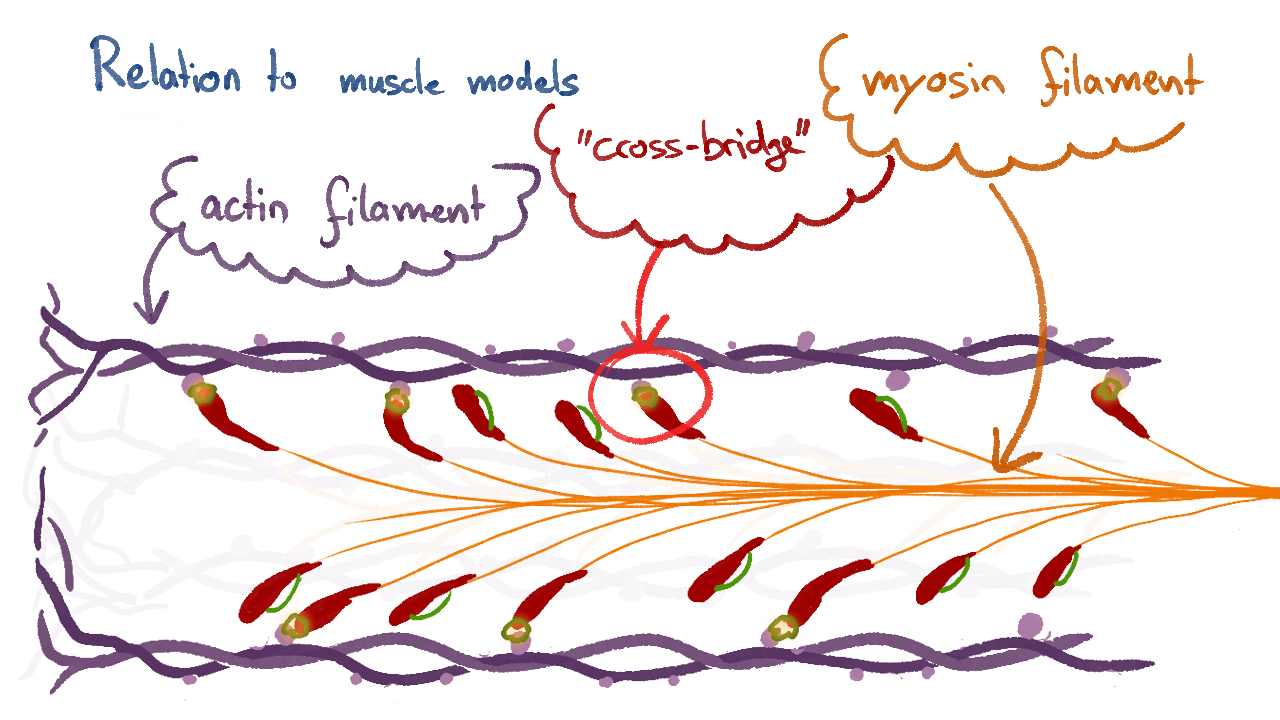 Relation to muscle models
myosin filament
"cross-bridge"
actin filament